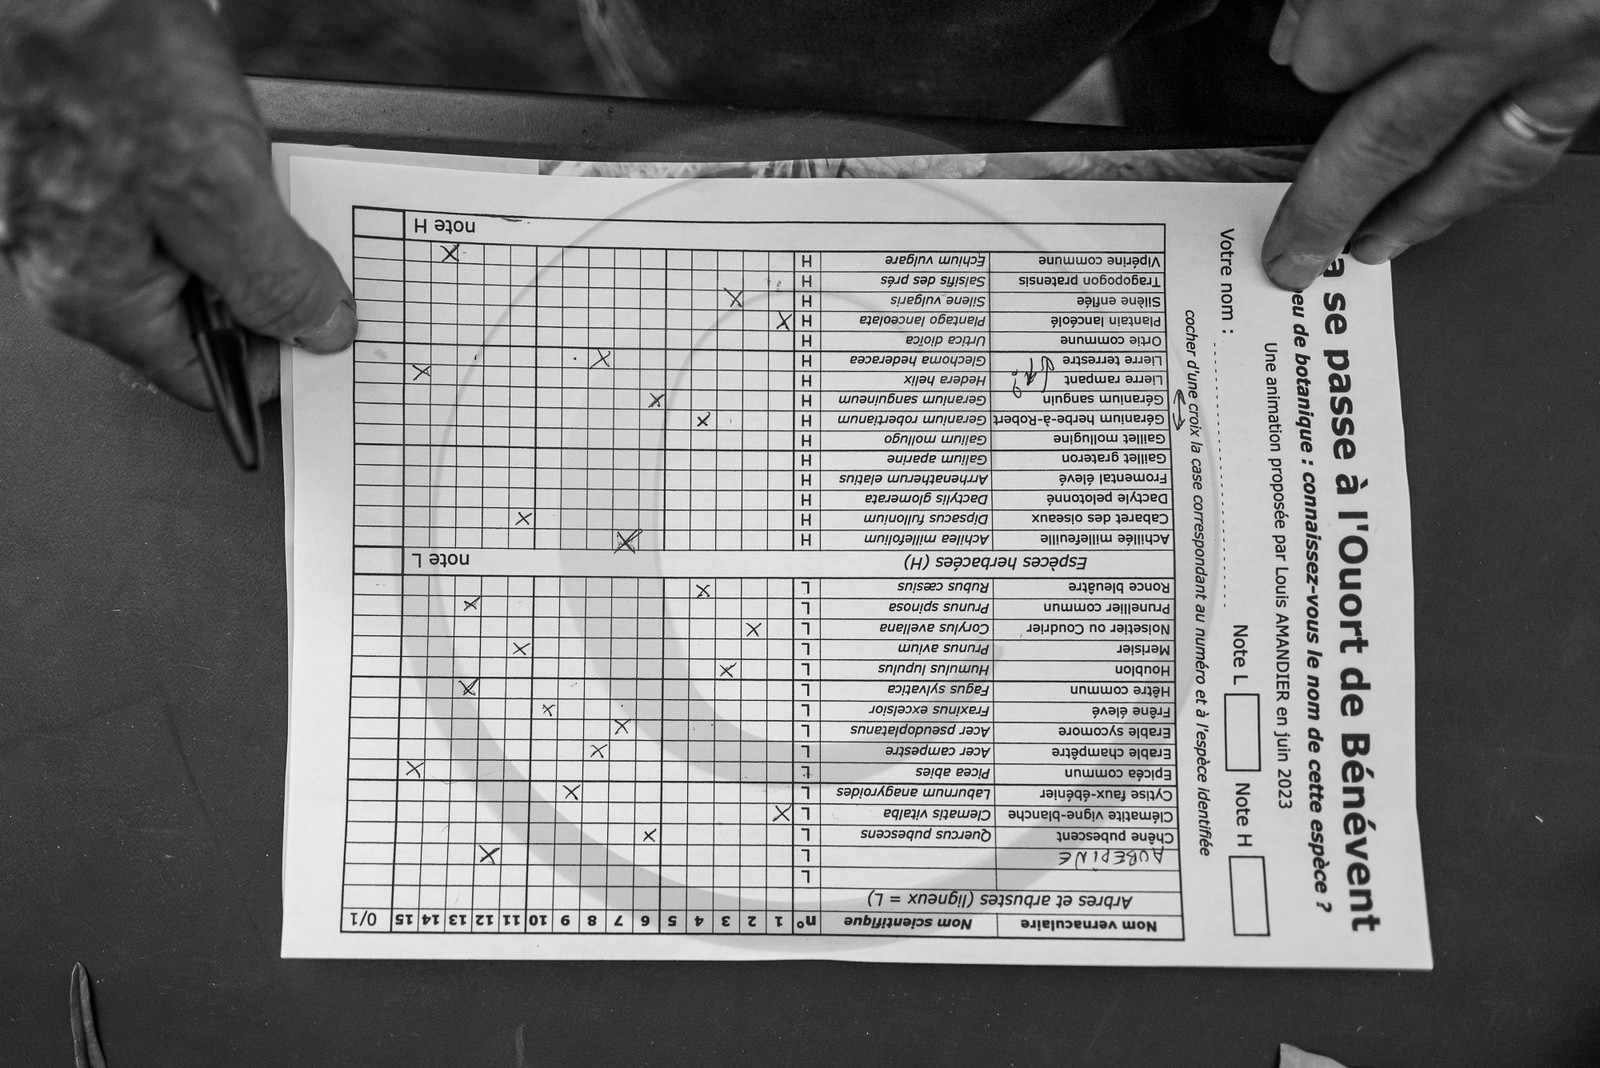 a se passe à l'Ouort de Bénévent
eu de botanique : connaissez-vous le nom de cette espèce ?
Une animation proposée par Louis AMANDIER en juin 2023
Votre nom : Note L Note H
cocher d'une croix la case correspondant au numéro et à l'espèce identifiée
Nom vernaculaire Nom scientifique n° 1 2 3 4 5 6 7 8 9 10 11 12 13 14 15 0/1
Arbres et arbustes (ligneux = L)
L
AUBEPINE L X
Chêne pubescent Quercus pubescens L X
Clématite vigne-blanche Clematis vitalba L X
Cytise faux-ébénier Laburnum anagyroides L X
Epicéa commun Picea abies L X
Erable champêtre Acer campestre L X
Erable sycomore Acer pseudoplatanus L X
Frêne élevé Fraxinus excelsior L X
Hêtre commun Fagus sylvatica L X
Houblon Humulus lupulus L X
Merisier Prunus avium L X
Noisetier ou Coudrier Corylus avellana L X
Prunellier commun Prunus spinosa L X
Ronce bleuâtre Rubus cæsius L X
Espèces herbacées (H) note L
Achillée millefeuille Achilea millefolium H X
Cabaret des oiseaux Dipsacus fullonium H X
Dactyle pelotonné Dactylis glomerata H
Fromental élevé Arrhenatherum elatius H
Gaillet grateron Galium aparine H
Gaillet mollugine Galium mollugo H
Géranium herbe-à-Robert Geranium robertianum H X
Géranium sanguin Geranium sanguineum H X
Lierre rampant Hedera helix H X
Lierre terrestre Glechoma hederacea H X
Ortie commune Urtica dioica H
Plantain lancéolé Plantago lanceolata H X
Silène enflée Silene vulgaris H X
Tragopogon pratensis Salsifis des prés H
Vipérine commune Echium vulgare H X
note H